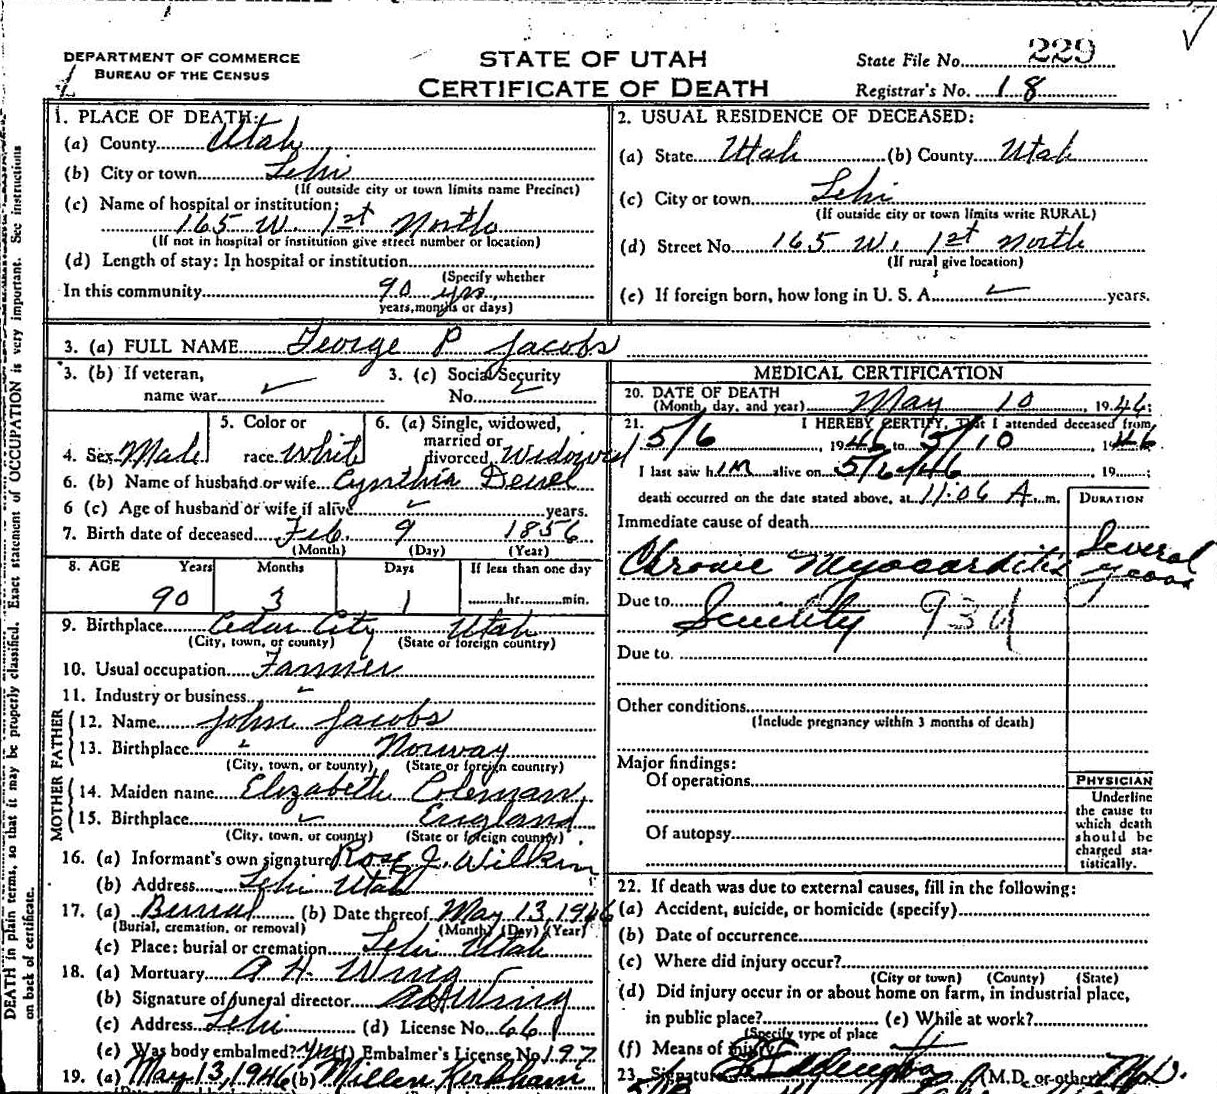 DEPARTMENT OF COMMERCE
BUREAU OF THE CENSUS
STATE OF UTAH
CERTIFICATE OF DEATH
State File No. 229
Registrar's No. 18
1. PLACE OF DEATH:
(a) County Utah
(b) City or town Lehi
(If outside city or town limits name Precinct)
(c) Name of hospital or institution:
165 W. 1st North
(If not in hospital or institution give street number or location)
(d) Length of stay: In hospital or institution
(Specify whether
In this community 90 yrs.
years, months or days)
2. USUAL RESIDENCE OF DECEASED:
(a) State Utah (b) County Utah
(c) City or town Lehi
(If outside city or town limits write RURAL)
(d) Street No. 165 W. 1st North
(If rural give location)
(e) If foreign born, how long in U. S. A. ✓ years.
3. (a) FULL NAME George P Jacobs
3. (b) If veteran,
name war ✓
3. (c) Social Security
No. ✓
4. Sex Male
5. Color or
race White
6. (a) Single, widowed,
married or
divorced Widowed
6. (b) Name of husband or wife Cynthia
6 (c) Age of husband or wife if alive ✓ years.
7. Birth date of deceased Feb. 9 1856
(Month) (Day) (Year)
8. AGE Years Months Days If less than one day
90 3 1 hr. min.
9. Birthplace Cedar City Utah
(City, town, or county) (State or foreign country)
10. Usual occupation Farmer
11. Industry or business ✓
FATHER
12. Name John Jacobs
13. Birthplace ✓ Norway
(City, town, or county) (State or foreign country)
MOTHER
14. Maiden name Elizabeth Coleman
15. Birthplace ✓ England
(City, town, or county) (State or foreign country)
16. (a) Informant's own signature Rose J. Wilkin
(b) Address Lehi Utah
17. (a) Burial (b) Date thereof May 13, 1946
(Burial, cremation, or removal) (Month) (Day) (Year)
(c) Place: burial or cremation Lehi Utah
18. (a) Mortuary A H Wing
(b) Signature of funeral director A H Wing
(c) Address Lehi (d) License No. 661
(e) Was body embalmed? Yes (f) Embalmer's License No. 197
19. (a) May 13, 1946 (b) Millen Kirkham
MEDICAL CERTIFICATION
20. DATE OF DEATH
(Month, day, and year) May 10, 1946:
21. I HEREBY CERTIFY, That I attended deceased from
5/6 1946 to 5/10 1946
I last saw him alive on 5/6/46, 19 ;
death occurred on the date stated above, at 11:06 A. m.
DURATION
Immediate cause of death
Chronic Myocarditis Several years
Due to
Senility 93d
Due to
Other conditions
(Include pregnancy within 3 months of death)
Major findings:
Of operations
Of autopsy
PHYSICIAN
Underline
the cause to
which death
should be
charged sta-
tistically.
22. If death was due to external causes, fill in the following:
(a) Accident, suicide, or homicide (specify)
(b) Date of occurrence
(c) Where did injury occur?
(City or town) (County) (State)
(d) Did injury occur in or about home on farm, in industrial place,
in public place? (e) While at work?
(Specify type of place
(f) Means of injury
23. Signature (M.D. or other) M.D.
DEATH in plain terms, so that it may be properly classified. Exact statement of OCCUPATION is very important. See instructions
on back of certificate.